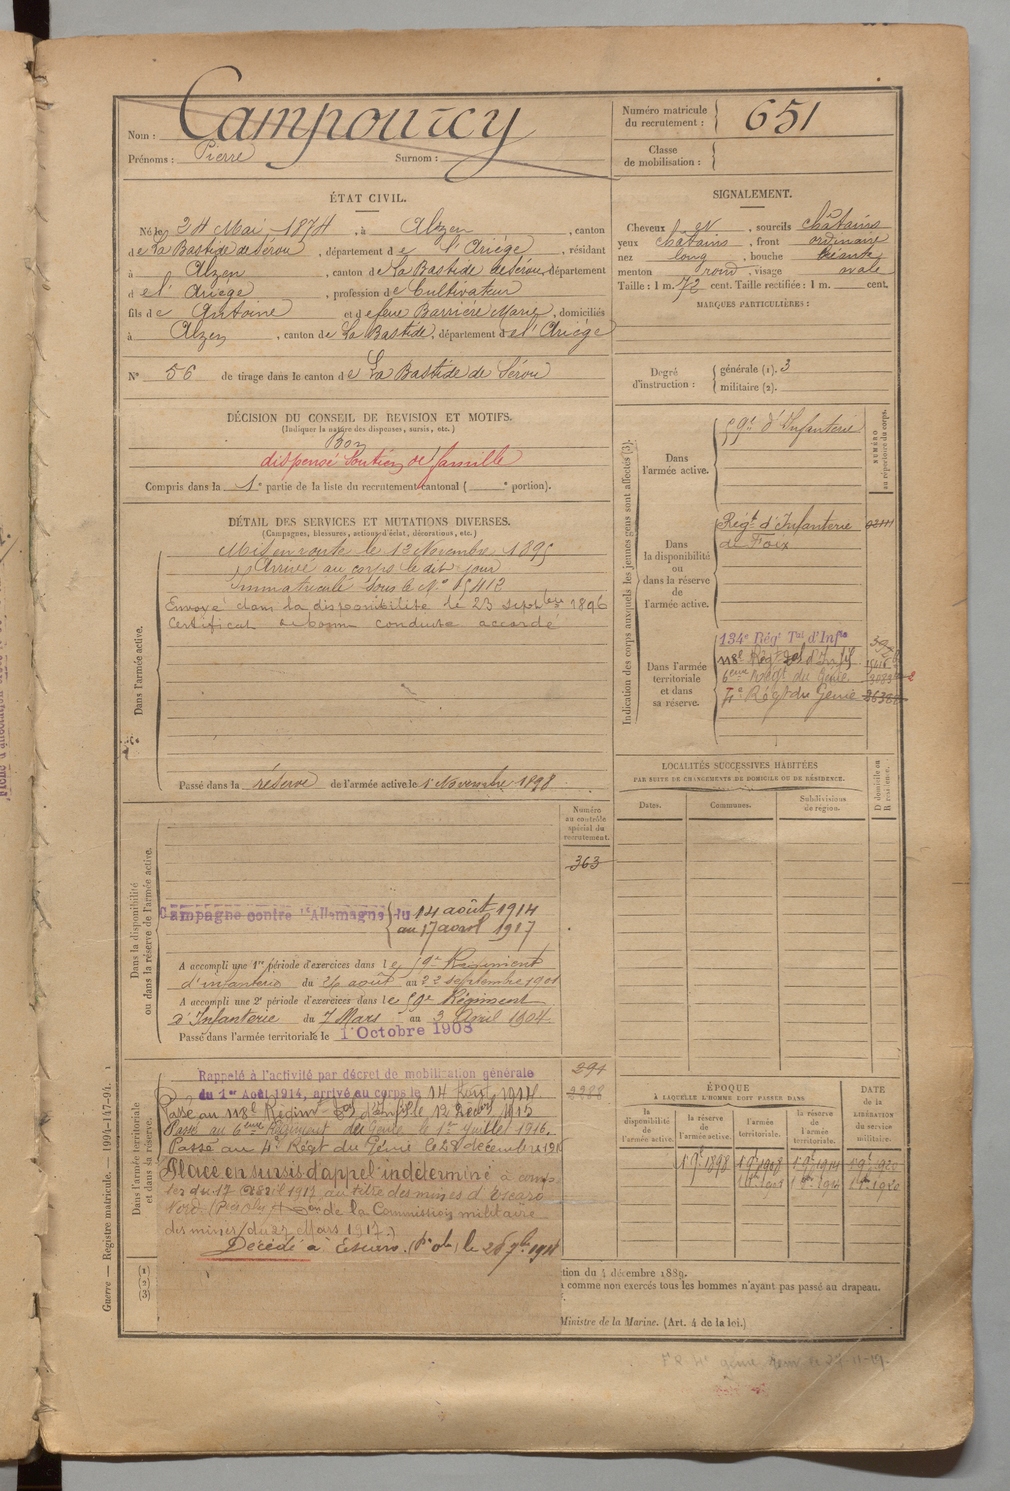 Nom : Campourcy
Prénoms : Pierre Surnom :
Numéro matricule du recrutement : 651
Classe de mobilisation :
ÉTAT CIVIL.
Né le 24 Mai 1874, à Alzen, canton
de La Bastide de Sérou, département de l'Ariège, résidant
à Alzen, canton de La Bastide de Sérou, département
de l'Ariège, profession de Cultivateur
fils de Antoine et de feue Barrière Marie, domiciliés
à Alzen, canton de La Bastide, département de l'Ariège
N° 56 de tirage dans le canton de La Bastide de Sérou
SIGNALEMENT.
Cheveux et, sourcils châtains
yeux châtains, front ordinaire
nez long, bouche
menton rond, visage ovale
Taille : 1 m. 72 cent. Taille rectifiée : 1 m. cent.
MARQUES PARTICULIÈRES :
Degré d'instruction : générale (1). 3
militaire (2).
DÉCISION DU CONSEIL DE REVISION ET MOTIFS.
(Indiquer la nature des dispenses, sursis, etc.)
Bon
dispensé Soutien de famille
Compris dans la 1e partie de la liste du recrutement cantonal ( portion).
DÉTAIL DES SERVICES ET MUTATIONS DIVERSES.
(Campagnes, blessures, actions d'éclat, décorations, etc.)
Dans l'armée active.
Mis en route le 13 Novembre 1895
Arrivé au corps le dit jour
Immatriculé sous le N°
Envoyé dans la disponibilité le 23 septbre 1896
Certificat de bonne conduite accordé
Passé dans la réserve de l'armée active le 1 Novembre 1898
Indication des corps auxquels les jeunes gens sont affectés (3).
NUMÉRO au répertoire du corps.
Dans l'armée active.
59e d'Infanterie
Dans la disponibilité ou dans la réserve de l'armée active.
Régt d'Infanterie
de Foix
Dans l'armée territoriale et dans sa réserve.
134e Rég Tal d'Infie
118e Régt
6eme Régt du Génie
4e Régt du Génie
LOCALITÉS SUCCESSIVES HABITÉES
PAR SUITE DE CHANGEMENTS DE DOMICILE OU DE RÉSIDENCE.
Dates. Communes. Subdivisions de région. D domicile ou R résidence.
Dans la disponibilité ou dans la réserve de l'armée active.
Numéro au contrôle spécial du recrutement.
363
Campagne contre l'Allemagne du 14 août 1914
au 17 avril 1917
A accompli une 1re période d'exercices dans le 59e Régiment
d'infanterie du 26 août au 22 septembre 1901
A accompli une 2e période d'exercices dans le 59e Régiment
d'Infanterie du 7 Mars au 3 Avril 1904.
Passé dans l'armée territoriale le 1 Octobre 1908
Dans l'armée territoriale et dans sa réserve.
294
Rappelé à l'activité par décret de mobilisation générale
du 1er Août 1914, arrivé au corps le 14 Août 1914
Passé au 118e Régimt le 12 1915
Passé au 6eme Régiment du Génie le 1er Juillet 1916.
Passé au 4e Régt du Génie le 28 décembre 191
Placé en sursis d'appel indéterminé à comp-
ter du 17 avril 1917 au titre des mines d'Escaro
Nord. de la Commission militaire
des mines du 27 Mars 1917.)
Décédé à Escaro le 1918
ÉPOQUE
À LAQUELLE L'HOMME DOIT PASSER DANS
la disponibilité de l'armée active. la réserve de l'armée active. l'armée territoriale. la réserve de l'armée territoriale.
DATE de la LIBÉRATION de service militaire.
1 9e 1898 1 9e 1908 1 9e 1914 1 9e 1920
(1)
(2)
(3)
tion du 4 décembre 1889.
comme non exercés tous les hommes n'ayant pas passé au drapeau.
Ministre de la Marine. (Art. 4 de la loi.)
Guerre — Registre matricule. — 1994-147-94.